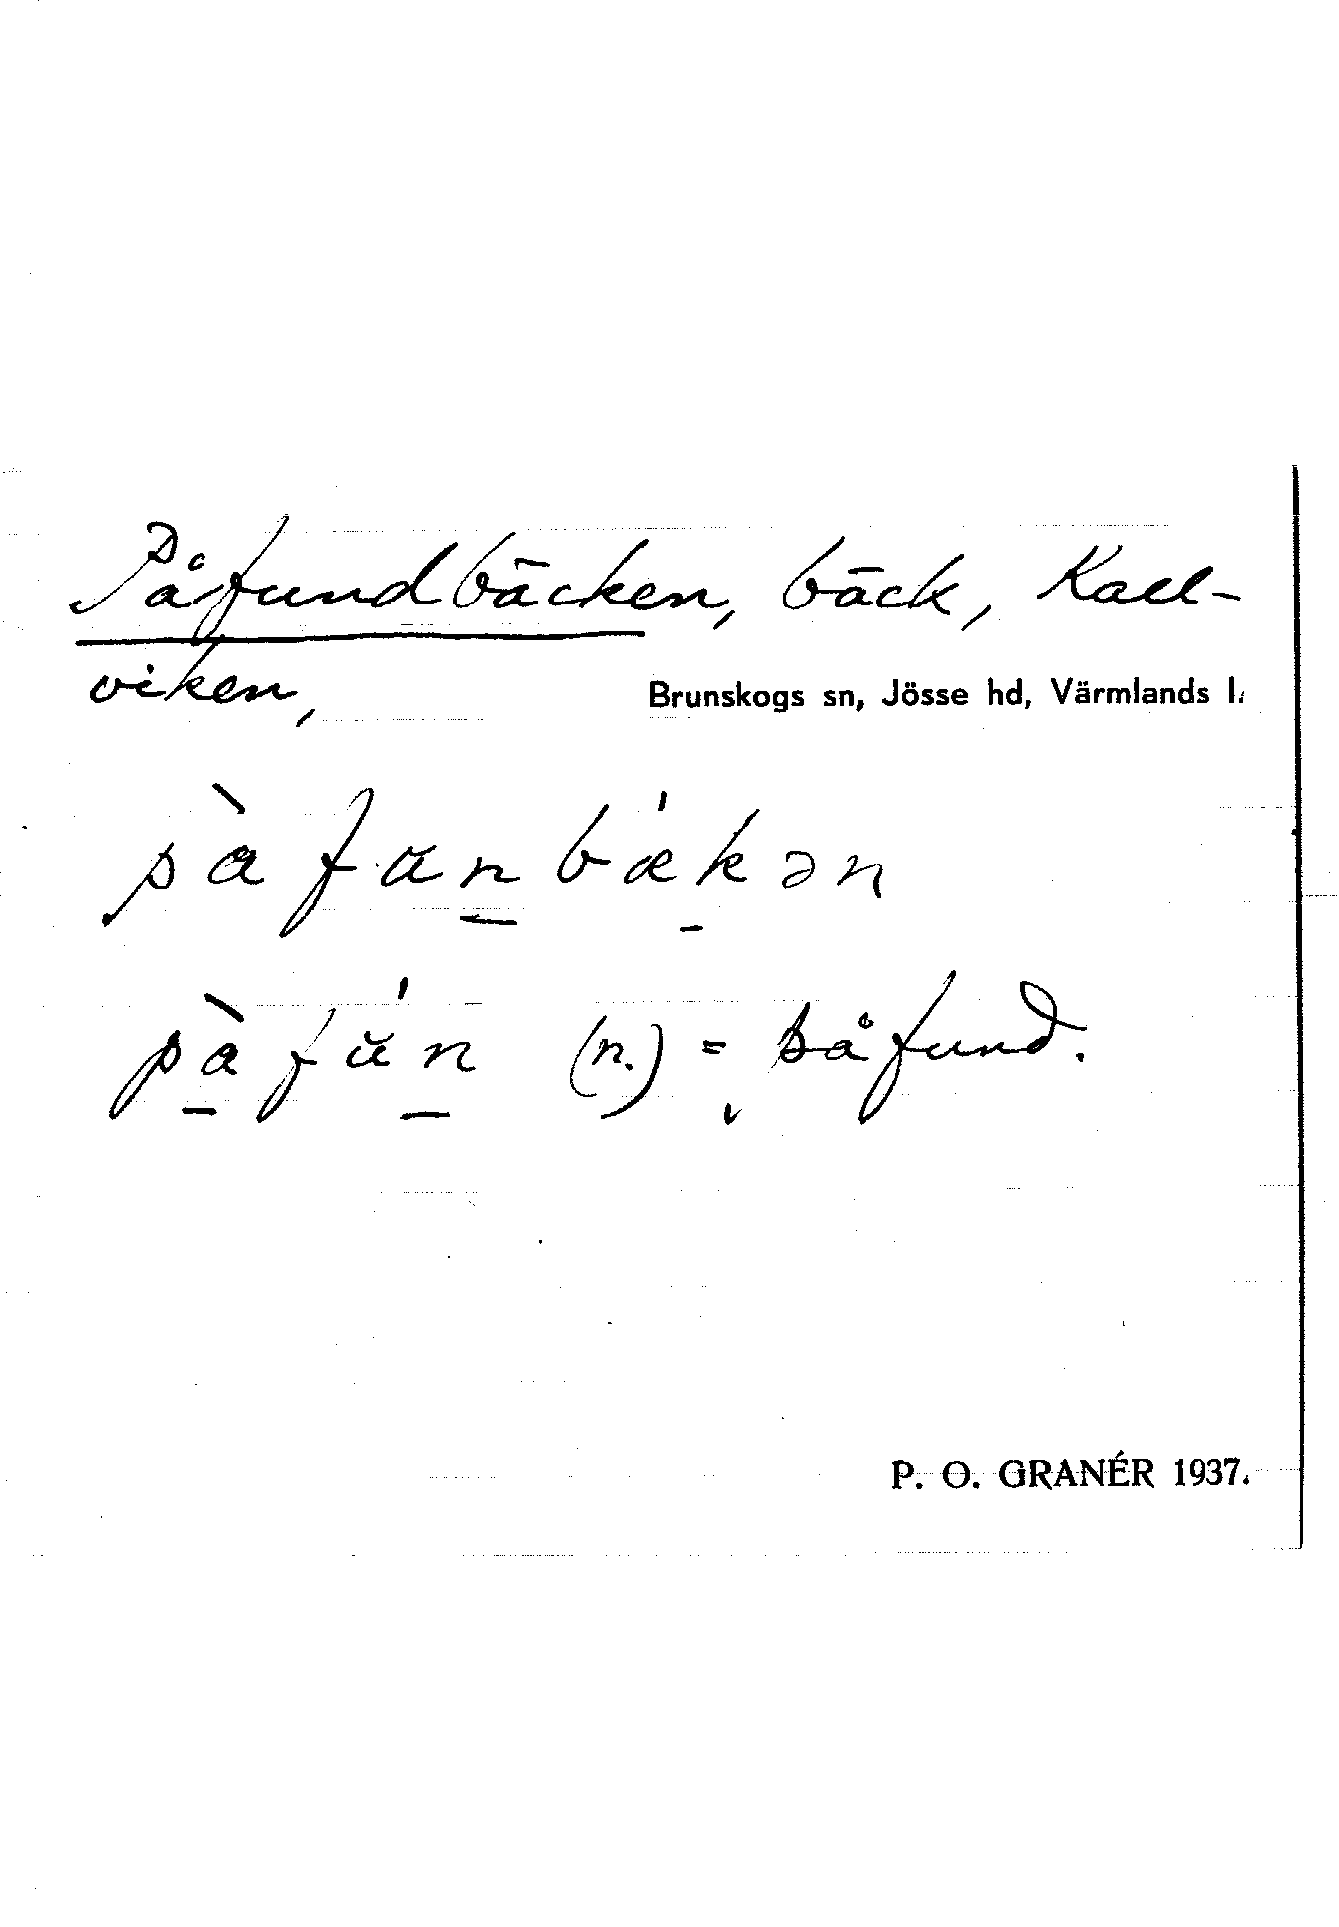 Påfundbäcken, bäck, Kall-
viken,
Brunskogs sn, Jösse hd, Värmlands l.
pàfun̲bǽk̲ən
pà̲fŭ́n̲ (n.) = påfund.
P. O. GRANÉR 1937.